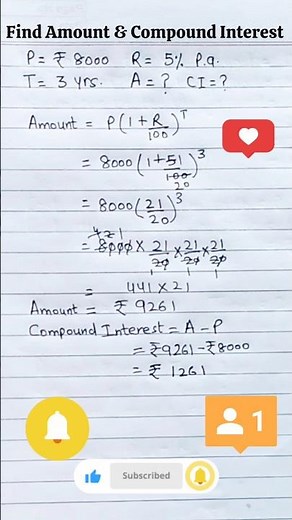 Find Amount & Compound Interest
P = ₹ 8000 R = 5% P.a.
T = 3 yrs. A = ? CI = ?
Amount = P(1 + R/100)^T
= 8000(1 + 51/100 20)^3
= 8000(21/20)^3
4 2 1
= 8000 × 21/20 × 21/20 × 21/20
1 1 1
= 441 × 21
Amount = ₹ 9261
Compound Interest = A - P
= ₹9261 - ₹8000
= ₹ 1261
1
Subscribed